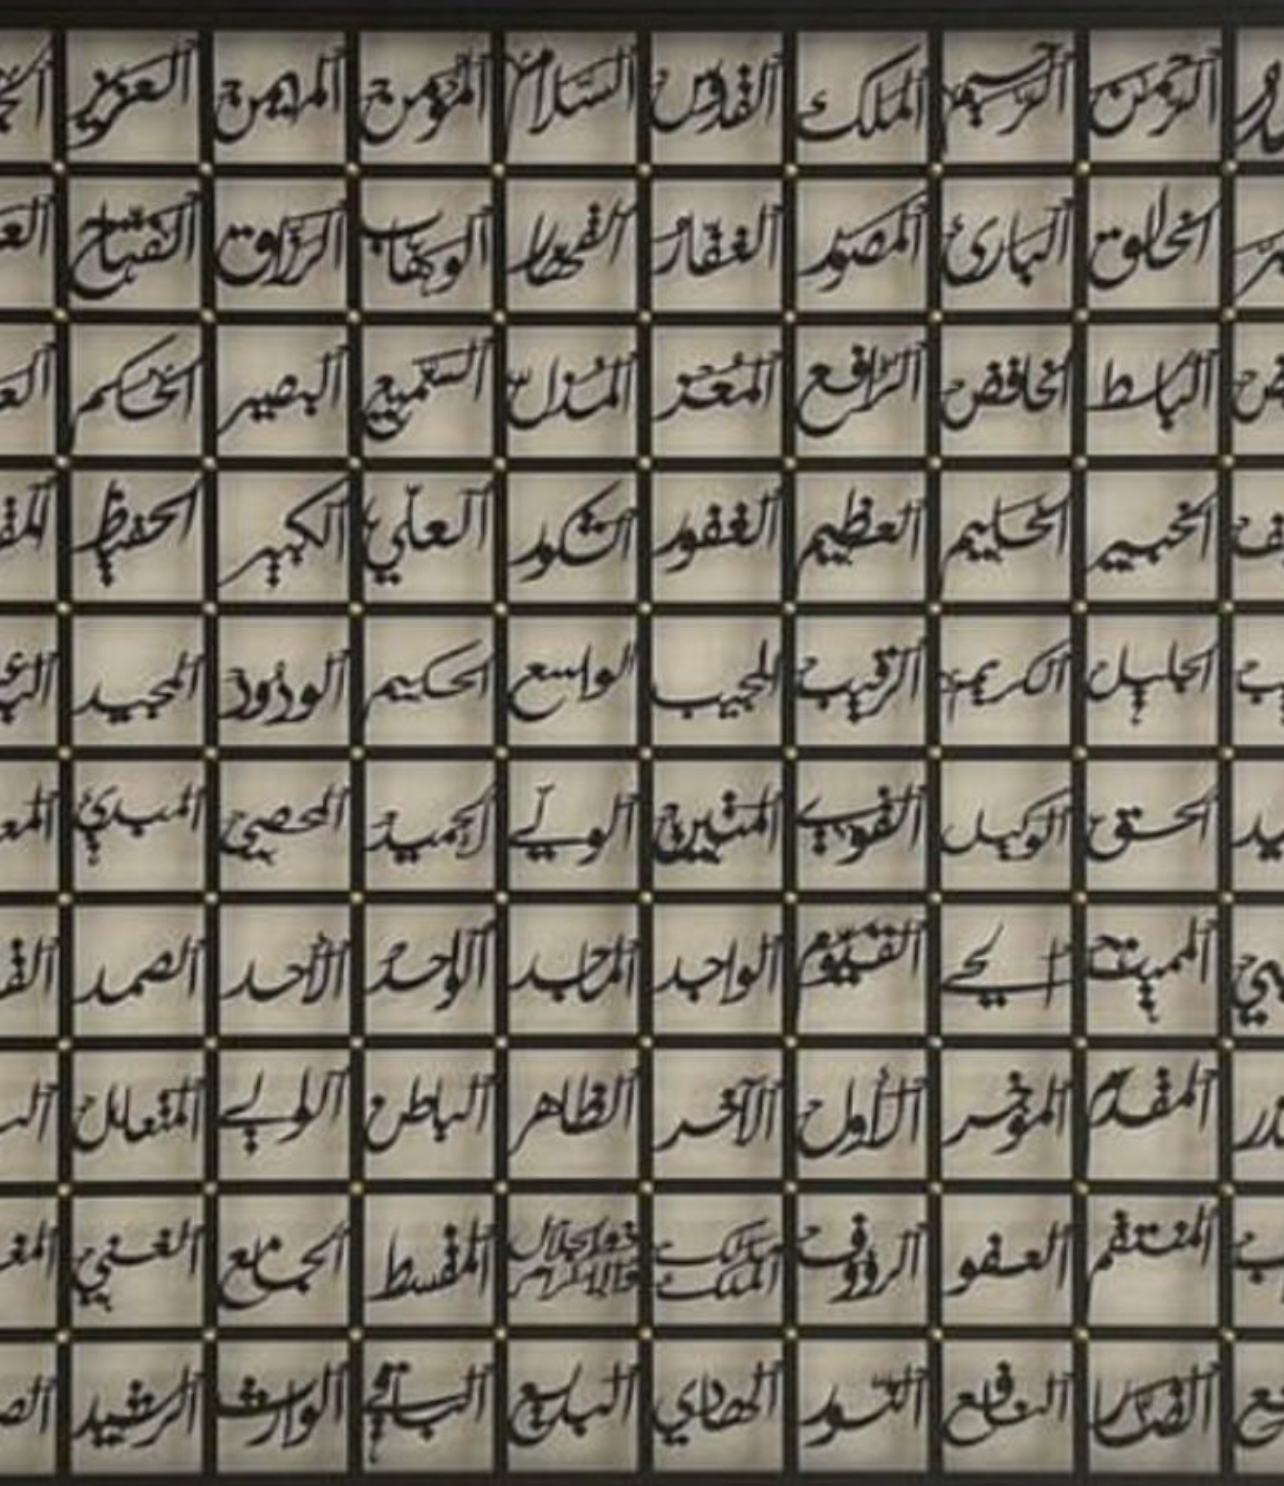 الرحمن الرحيم الملك القدوس السلام المؤمن المهيمن العزيز
الخالق البارئ المصور الغفار القهار الوهاب الرزاق الفتاح
الباسط الخافض الرافع المعز المذل السميع البصير الحكم
الخبير الحليم العظيم الغفور الشكور العلي الكبير الحفيظ
الجليل الكريم الرقيب المجيب الواسع الحكيم الودود المجيد
الحق الوكيل القوي المتين الولي الحميد المحصي المبدئ
المميت الحي القيوم الواجد الماجد الواحد الأحد الصمد
المقدم المؤخر الأول الآخر الظاهر الباطن الوالي المتعال
المنتقم العفو الرؤوف مالك الملك ذو الجلال والإكرام المقسط الجامع الغني
الضار النافع النور الهادي البديع الباقي الوارث الرشيد